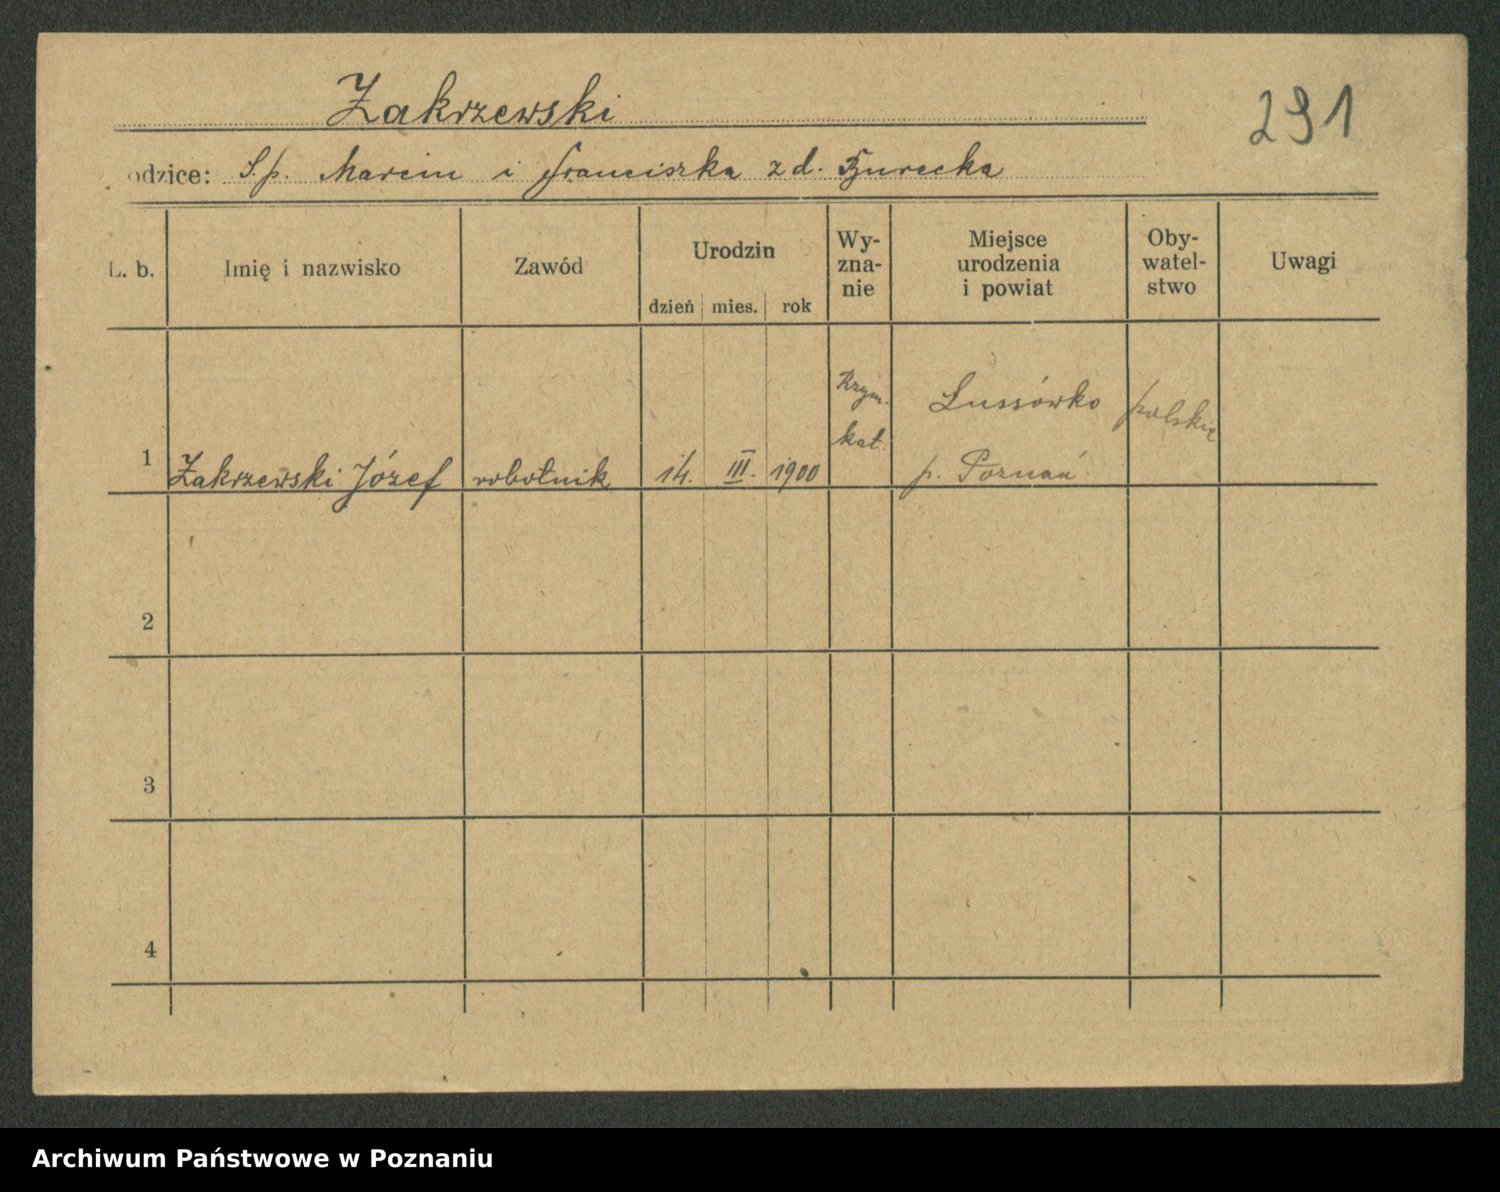 Zakrzewski
291
odzice: S.p. Marcin i Franciszka z d.
L. b.
Imię i nazwisko
Zawód
Urodzin
dzień mies. rok
Wy-
zna-
nie
Miejsce
urodzenia
i powiat
Oby-
watel-
stwo
Uwagi
1
Zakrzewski Józef
robotnik
14. III. 1900
Rzym.
kat.
Lussówko
p. Poznań
polskie
2
3
4
Archiwum Państwowe w Poznaniu